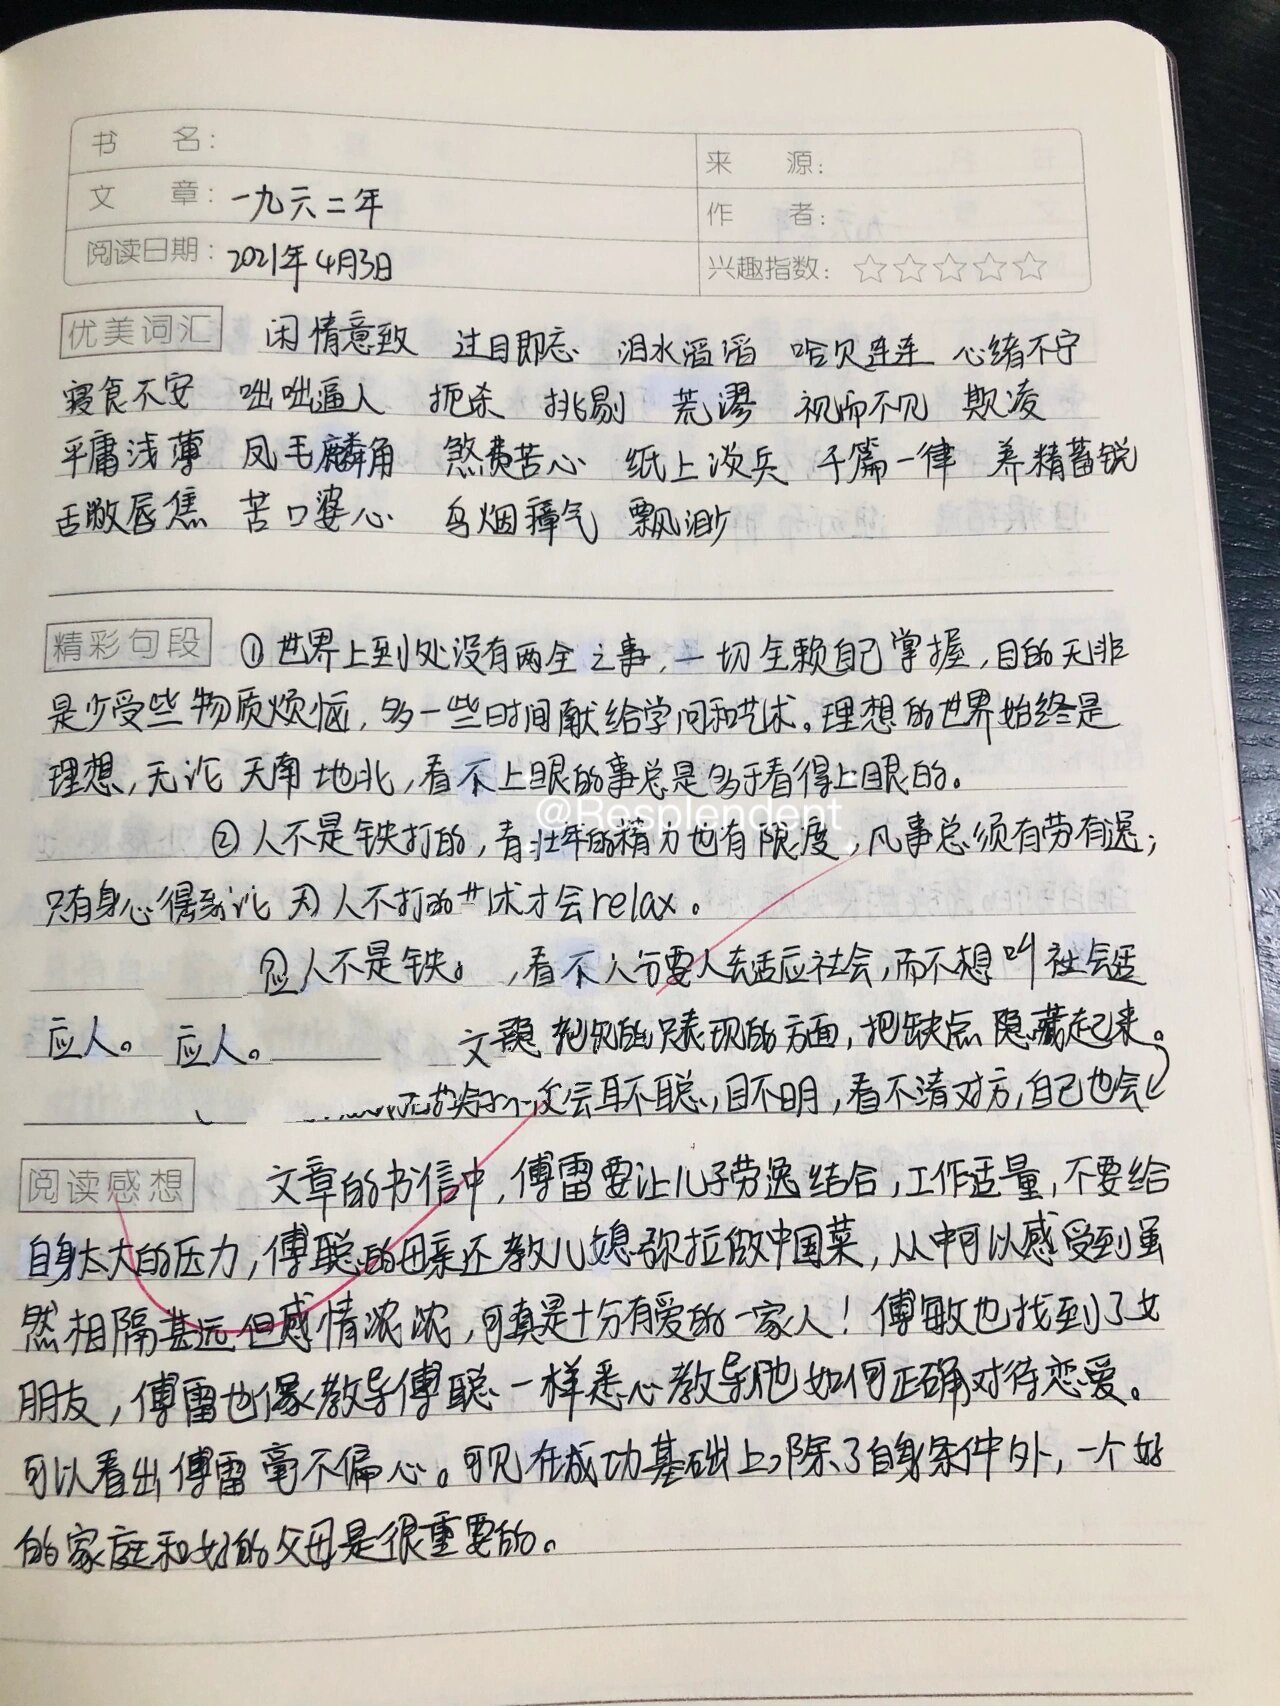 书 名：
来 源：
文 章：一九六二年
作 者：
阅读日期：2021年4月3日
兴趣指数：☆☆☆☆☆
优美词汇 闲情意致 过目即忘 泪水滔滔 哈欠连连 心绪不宁
寝食不安 咄咄逼人 扼杀 挑剔 荒谬 视而不见 欺凌
平庸浅薄 凤毛麟角 煞费苦心 纸上谈兵 千篇一律 养精蓄锐
舌敝唇焦 苦口婆心 乌烟瘴气 飘渺
精彩句段 ①世界上到处没有两全之事，一切全赖自己掌握，目的无非
是少受些物质烦恼，多一些时间献给学问和艺术。理想的世界始终是
理想，无论天南地北，看不上眼的事总是多于看得上眼的。
@Resplendent
②人不是铁打的，青壮年的精力也有限度，凡事总须有劳有逸；
只有身心 人不打的 才会relax。
人不是铁。，看不 要人去适应社会，而不想叫社会适
应人。 应人。 文 的只表现的方面，把缺点隐藏起来。
会耳不聪，目不明，看不清对方，自己也会
阅读感想 文章的书信中，傅雷要让儿子劳逸结合，工作适量，不要给
自身太大的压力，傅聪的母亲还教儿媳弥拉做中国菜，从中可以感受到虽
然相隔甚远但感情浓浓，可真是十分有爱的一家人！傅敏也找到了女
朋友，傅雷也像教导傅聪一样悉心教导他如何正确对待恋爱。
可以看出傅雷毫不偏心。可见在成功基础上，除了自身条件外，一个好
的家庭和好的父母是很重要的。